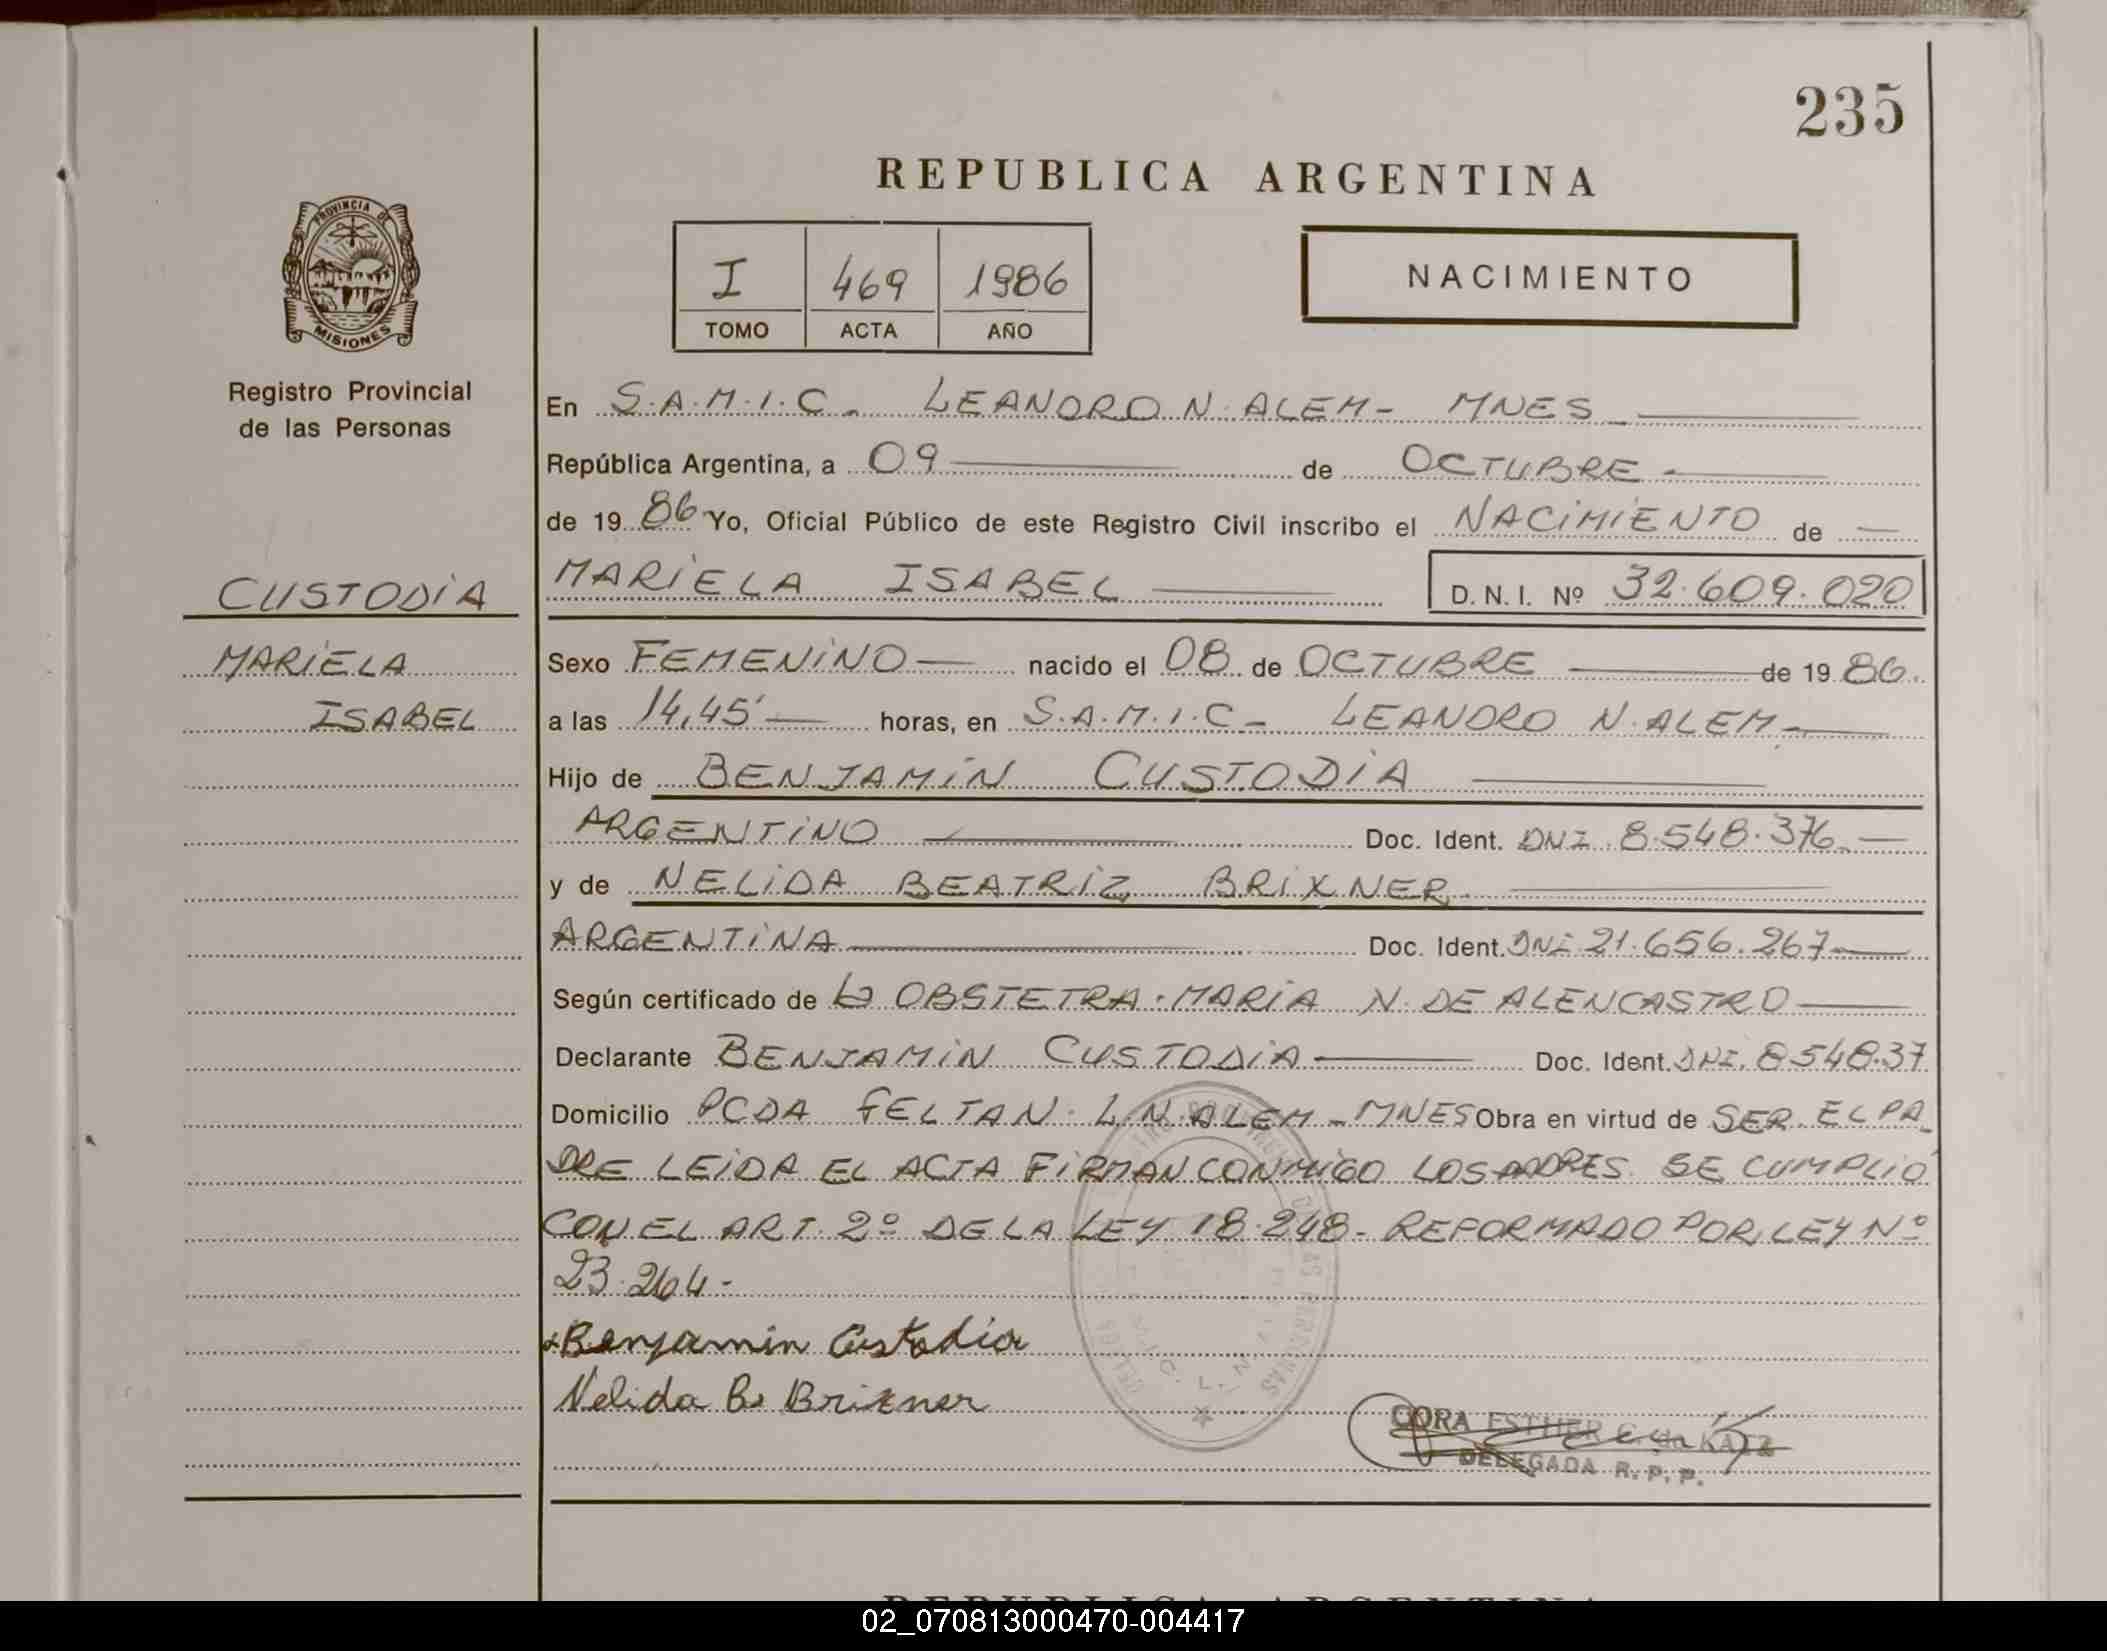 235
REPUBLICA ARGENTINA
PROVINCIA DE
MISIONES
I 469 1986
TOMO ACTA AÑO
NACIMIENTO
Registro Provincial
de las Personas
CUSTODIA
MARIELA
ISABEL
En S.A.M.I.C. LEANDRO N. ALEM - MNES
República Argentina, a 09 de OCTUBRE
de 19 86 Yo, Oficial Público de este Registro Civil inscribo el NACIMIENTO de
MARIELA ISABEL D.N.I. Nº 32.609.020
Sexo FEMENINO nacido el 08 de OCTUBRE de 19 86.
a las 14,45' horas, en S.A.M.I.C - LEANDRO N. ALEM
Hijo de BENJAMIN CUSTODIA
ARGENTINO Doc. Ident. DNI 8.548.376
y de NELIDA BEATRIZ BRIXNER
ARGENTINA Doc. Ident. DNI 21.656.267
Según certificado de la OBSTETRA. MARIA N. DE ALENCASTRO
Declarante BENJAMIN CUSTODIA Doc. Ident. DNI. 8548.37
Domicilio PCDA FELTAN L.N. ALEM - MNES Obra en virtud de SER EL PA
DRE LEIDA EL ACTA FIRMAN CONMIGO LOS PADRES SE CUMPLIO
CON EL ART. 2º DE LA LEY 18.248 - REFORMADO POR LEY Nº
23.264-
Benjamin Custodia
Nelida B. Brixner
CORA ESTHER C. de KATZ
DELEGADA R.P.P.
REPUBLICA ARGENTINA
02_070813000470-004417